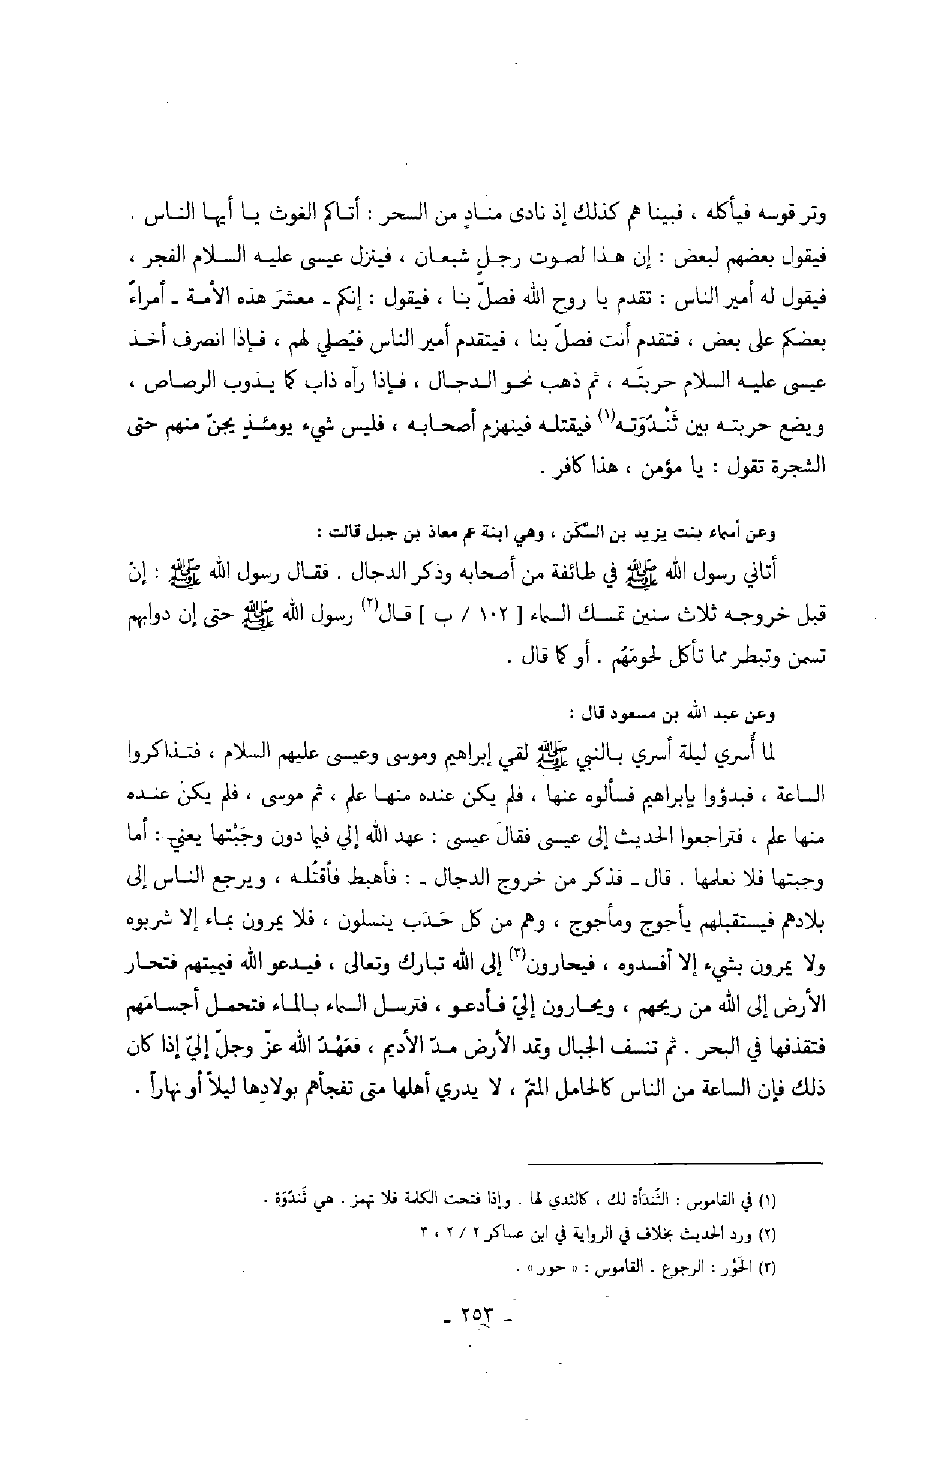 وتر قوسه فيأكله ، فبينا هم كذلك إذ نادى منادٍ من السحر : أتاكم الغوث يا أيها الناس .
فيقول بعضهم لبعض : إن هذا لصوت رجلٍ شبعان ، فينزل عيسى عليه السلام الفجر ،
فيقول له أمير الناس : تقدم يا روح الله فصلّ بنا ، فيقول : إنكم - معشرَ هذه الأمة - أمراءُ
بعضكم على بعض ، فتقدم أنت فصلّ بنا ، فيتقدم أمير الناس فيُصلي لهم ، فإذا انصرف أخذ
عيسى عليه السلام حربتَه ، ثم ذهب نحو الدجال ، فإذا رآه ذاب كما يذوب الرصاص ،
ويضع حربته بين ثَنْدُوَته(١) فيقتله فينهزم أصحابه ، فليس شيء يومئذٍ يجنّ منهم حتى
الشجرة تقول : يا مؤمن ، هذا كافر .
وعن أسماء بنت يزيد بن السَّكَن ، وهي ابنة عم معاذ بن جبل قالت :
أتاني رسول الله ﷺ في طائفة من أصحابه وذكر الدجال . فقال رسول الله ﷺ : إنّ
قبل خروجه ثلاث سنين تمسك السماء [ ١٠٢ / ب ] قال(٢) رسول الله ﷺ حتى إن دوابهم
تسمن وتبطر مما تأكل لحومَهُم . أو كما قال .
وعن عبد الله بن مسعود قال :
لما أُسري ليلة أسري بالنبي ﷺ لقي إبراهيم وموسى وعيسى عليهم السلام ، فتذاكروا
الساعة ، فبدؤوا بإبراهيم فسألوه عنها ، فلم يكن عنده منها علم ، ثم موسى ، فلم يكنْ عنده
منها علم ، فتراجعوا الحديث إلى عيسى فقالَ عيسى : عهد الله إلي فيما دون وجَبْتِها يعني : أما
وجبتها فلا نعلمها . قال - فذكر من خروج الدجال - : فأهبط فأقتُله ، ويرجع الناس إلى
بلادهم فيستقبلهم يأجوج ومأجوج ، وهم من كل حَدَب ينسلون ، فلا يمرون بماء إلا شربوه
ولا يمرون بشيء إلا أفسدوه ، فيحارون(٣) إلى الله تبارك وتعالى ، فيدعو الله فيميتهم فتحار
الأرض إلى الله من ريحهم ، ويحارون إليّ فأدعو ، فترسل السماء بالماء فتحمل أجسامَهم
فتقذفها في البحر . ثم تنسف الجبال وتمد الأرض مدّ الأديم ، فعَهْدُ الله عزّ وجلّ إليّ إذا كان
ذلك فإن الساعة من الناس كالحامل المتمّ ، لا يدري أهلها متى تفجأهم بولادها ليلاً أو نهاراً .
(١) في القاموس : الثُّنْدُأة لك ، كالثدي لها . وإذا فتحت الكلمة فلا تهمز . هي ثَنْدُوَة .
(٢) ورد الحديث بخلاف في الرواية في ابن عساكر ٢ / ٢ ، ٣
(٣) الحَوْر : الرجوع . القاموس : « حور » .
- ٢٥٣ -